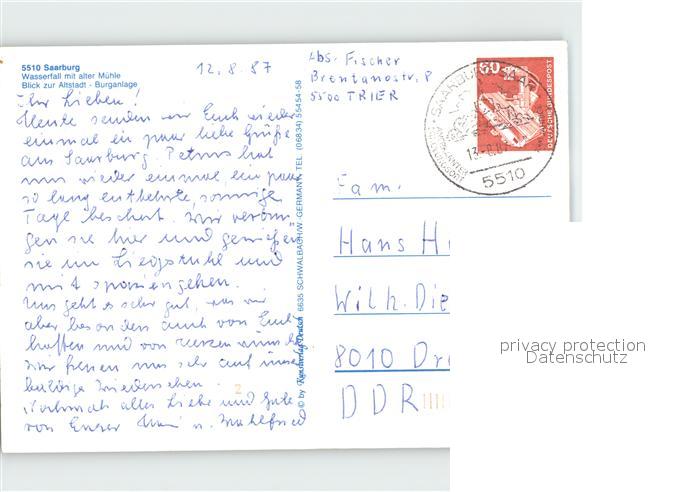 5510 Saarburg
Wasserfall mit alter Mühle
Blick zur Altstadt - Burganlage
12.8.87
Ihr Lieben!
Heute senden wir Euch wieder
einmal ein paar liebe Grüße
aus Saarburg. Petrus hat
uns wieder einmal ein paar
so lang entbehrte, sonnige
Tage beschert. Wir verbrin-
gen sie hier und genießen
sie im Liegestuhl und
mit spazierengehen.
Uns geht es sehr gut, was wir
aber besonders auch von Euch
hoffen und von Herzen wünschen
Wir freuen uns sehr auf unser
baldiges Wiedersehen.
Nochmals alles Liebe und Gute
von Eurer u.
2
© by Krüger 6635 SCHWALBACH/W.-GERMANY, TEL. (06834) 55454-58
Abs. Fischer
Brentanostr. 8
5500 TRIER
60
DEUTSCHE BUNDESPOST
SAARBURG, SAAR
13.-8.87
5510
Fam.
Hans H
Wilh. Die
8010 Dre
DDR
privacy protection
Datenschutz